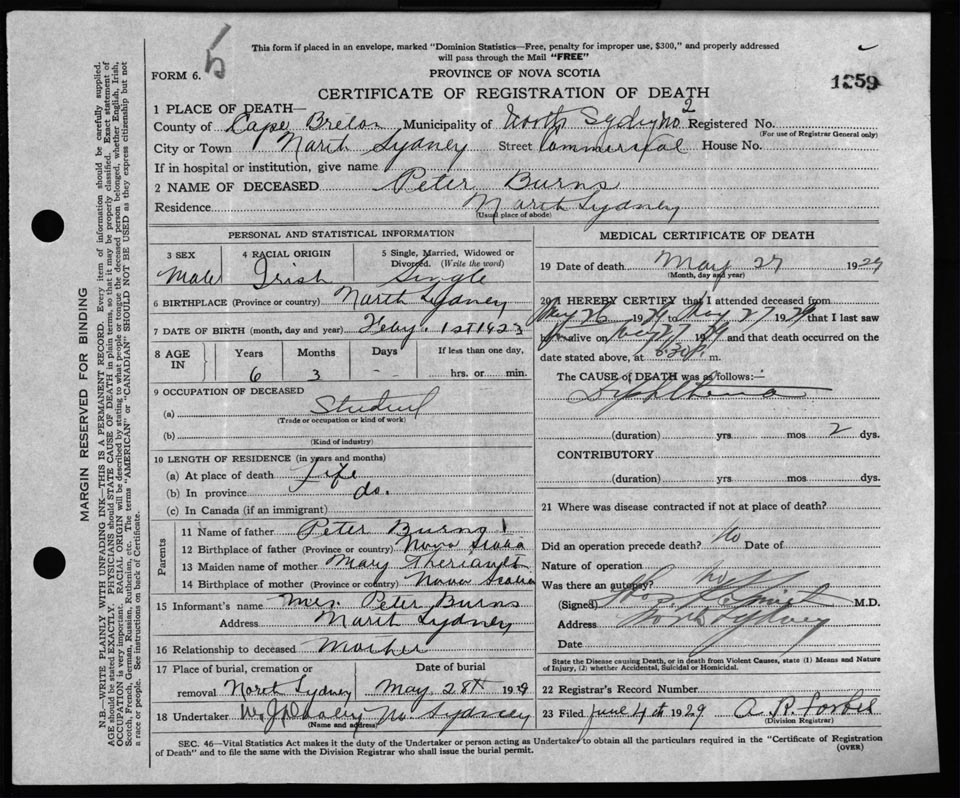 This form if placed in an envelope, marked "Dominion Statistics—Free, penalty for improper use, $300," and properly addressed
will pass through the Mail "FREE"
FORM 6.
PROVINCE OF NOVA SCOTIA
1259
CERTIFICATE OF REGISTRATION OF DEATH
1 PLACE OF DEATH—
County of Cape Breton Municipality of North Sydney No 2 Registered No.
(For use of Registrar General only)
City or Town North Sydney Street Commercial House No.
If in hospital or institution, give name
2 NAME OF DECEASED Peter Burns
Residence North Sydney
(Usual place of abode)
PERSONAL AND STATISTICAL INFORMATION
3 SEX 4 RACIAL ORIGIN 5 Single, Married, Widowed or
Divorced. (Write the word)
Male Irish Single
6 BIRTHPLACE (Province or country) North Sydney
7 DATE OF BIRTH (month, day and year) Feby. 1st 1923
8 AGE IN Years Months Days If less than one day,
6 3 - - hrs. or min.
9 OCCUPATION OF DECEASED
(a) Student
(Trade or occupation or kind of work)
(b)
(Kind of industry)
10 LENGTH OF RESIDENCE (in years and months)
(a) At place of death Life
(b) In province do.
(c) In Canada (if an immigrant)
Parents
11 Name of father Peter Burns
12 Birthplace of father (Province or country) Nova Scotia
13 Maiden name of mother Mary Theriault
14 Birthplace of mother (Province or country) Nova Scotia
15 Informant's name Mrs. Peter Burns
Address North Sydney
16 Relationship to deceased Mother
17 Place of burial, cremation or Date of burial
removal North Sydney May 28th 1929
18 Undertaker No. Sydney
(Name and address)
MEDICAL CERTIFICATE OF DEATH
19 Date of death May 27 1929
(Month, day and year)
20 I HEREBY CERTIFY that I attended deceased from
May 26 1929 May 27 1929 that I last saw
him alive on May 27 1929 and that death occurred on the
date stated above, at 8.30 P. m.
The CAUSE of DEATH was as follows:—
Diphtheria
(duration) yrs. mos 2 dys.
CONTRIBUTORY
(duration) yrs. mos dys.
21 Where was disease contracted if not at place of death?
Did an operation precede death? No Date of
Nature of operation
Was there an autopsy? no
(Signed) M.D.
Address North Sydney
Date
State the Disease causing Death, or in death from Violent Causes, state (1) Means and Nature
of Injury, (2) whether Accidental, Suicidal or Homicidal.
22 Registrar's Record Number
23 Filed June 4th 1929 A. R. Forbes
(Division Registrar)
SEC. 46—Vital Statistics Act makes it the duty of the Undertaker or person acting as Undertaker to obtain all the particulars required in the "Certificate of Registration
of Death" and to file the same with the Division Registrar who shall issue the burial permit.
(OVER)
MARGIN RESERVED FOR BINDING
N.B.—WRITE PLAINLY WITH UNFADING INK—THIS IS A PERMANENT RECORD. Every item of information should be carefully supplied.
AGE should be stated EXACTLY. PHYSICIANS should STATE CAUSE OF DEATH in plain terms, so that it may be properly classified. Exact statement of
OCCUPATION is very important. RACIAL ORIGIN will be described by stating to what people or tongue the deceased person belonged, whether English, Irish,
Scotch, French, German, Russian, Ruthenian, etc. The terms "AMERICAN" or "CANADIAN" SHOULD NOT BE USED as they express citizenship but not
a race or people. See instructions on back of Certificate.